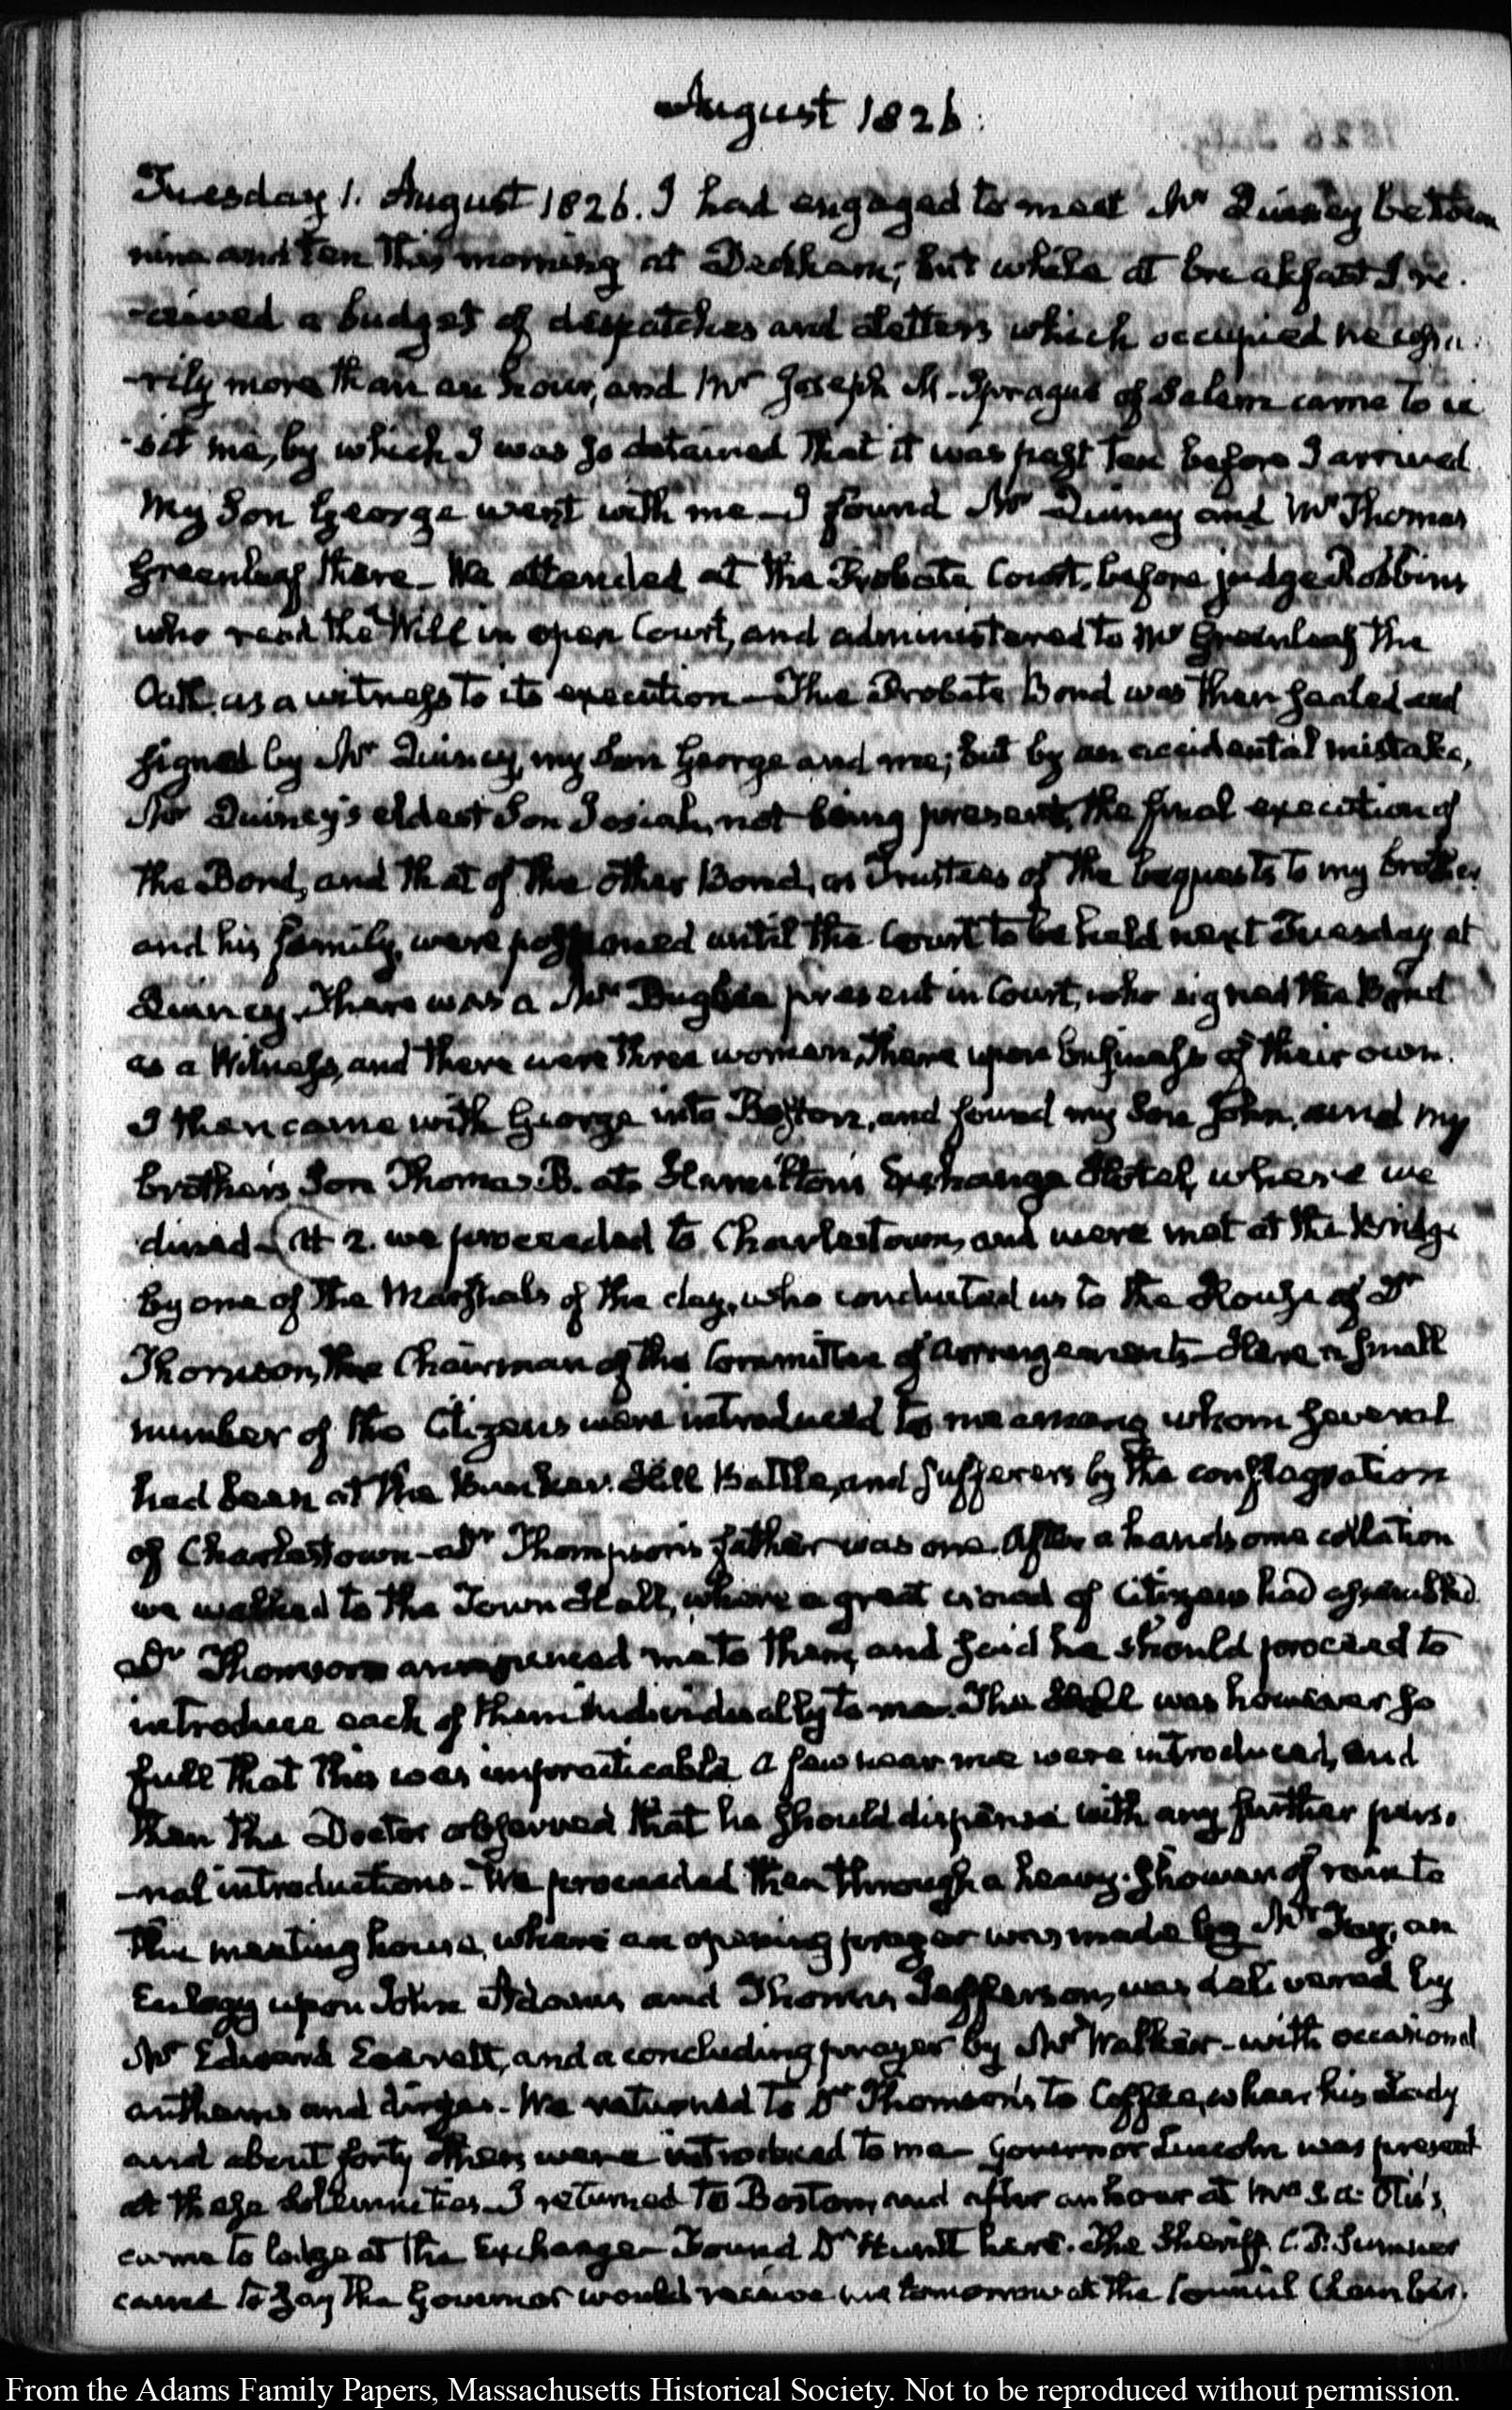 August 1826.
Tuesday 1. August 1826. I had engaged to meet Mr Quincy between
nine and ten this morning at Dedham; but while at breakfast I re-
-ceived a budget of dispatches and letters which occupied necessa-
-rily more than an hour, and Mr Joseph H. Sprague of Salem came to vi
-sit me, by which I was so detained that it was past ten before I arrived.
My Son George went with me — I found Mr Quincy and Mr Thomas
Greenleaf there — We attended at the Probate Court, before judge Robbins
who read the Will in open Court, and administered to Mr Greenleaf the
Oath as a witness to its execution — The Probate Bond was then sealed and
signed by Mr Quincy, my Son George and me; but by an accidental mistake,
Mr Quincy's eldest Son Josiah, not being present, the final execution of
the Bond, and that of the other Bond, as Trustees of the bequests to my brother
and his family, were postponed until the Court to be held next Tuesday at
Quincy. There was a Mr Bugbee present in Court, who signed the Bond
as a Witness, and there were three women, there upon business of their own.
I then came with George into Boston, and found my Son John, and my
brother's Son Thomas B. at Hamilton's Exchange Hotel, where we
dined — At 2. we proceeded to Charlestown, and were met at the bridge
by one of the Marshals of the day, who conducted us to the House of Dr
Thomson, the Chairman of the Committee of Arrangements — Here a small
number of the Citizens were introduced to me among whom several
had been at the Bunker Hill Battle, and sufferers by the conflagration
of Charlestown — Dr Thompson's father was one. After a handsome collation
we walked to the Town Hall, where a great crowd of Citizens had assembled.
Dr Thomson announced me to them, and said he should proceed to
introduce each of them individually to me. The Hall was however so
full that this was impracticable. A few near me were introduced, and
then the Doctor observed that he should dispense with any further perso-
-nal introductions — We proceeded then through a heavy shower of rain to
the meeting house, where an opening prayer was made by Mr Fay, an
Eulogy upon John Adams and Thomas Jefferson, was delivered by
Mr Edward Everett, and a concluding prayer by Mr Walker — with occasional
anthems and dirges — We returned to Dr Thomson's to Coffee, where his Lady
and about forty others were introduced to me — Governor Lincoln was present
at these solemnities — I returned to Boston, and after an hour at Mrs S. A. Otis's,
came to lodge at the Exchange — Found Dr Huntt here. The Sheriff C. P. Sumner
came to say the Governor would receive me tomorrow at the Council Chamber.
From the Adams Family Papers, Massachusetts Historical Society. Not to be reproduced without permission.